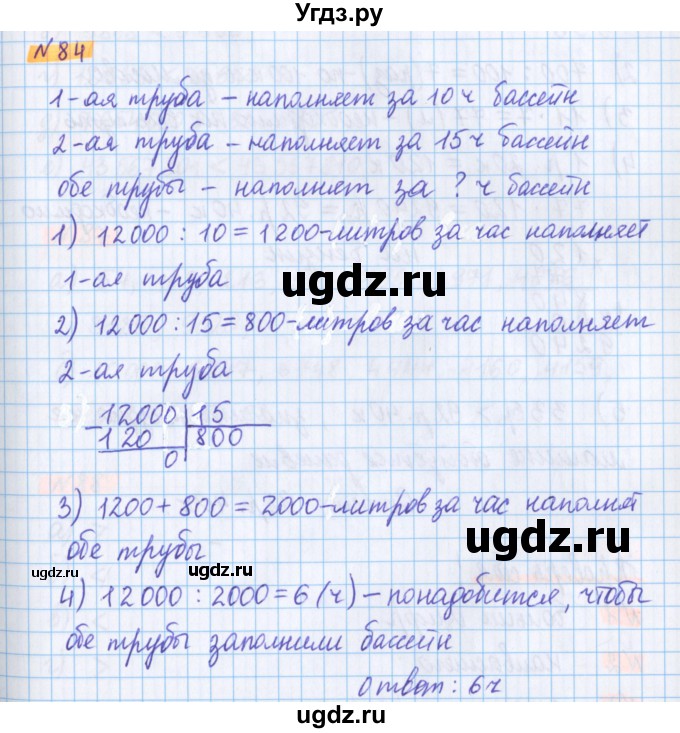 Угдз.ру
№ 84
1-ая труба – наполняет за 10 ч бассейн
2-ая труба – наполняет за 15 ч бассейн
обе трубы – наполняет за ? ч бассейн
1) 12000 : 10 = 1200-литров за час наполняет
1-ая труба
ugdz.ru
2) 12000 : 15 = 800-литров за час наполняет
2-ая труба
12000 15
120 800
0
ugdz.ru
3) 1200 + 800 = 2000-литров за час наполнят
обе трубы
ugdz.ru ugdz.ru
4) 12000 : 2000 = 6 (ч) – понадобится, чтобы
обе трубы заполнили бассейн
Ответ: 6ч
ugdz.ru